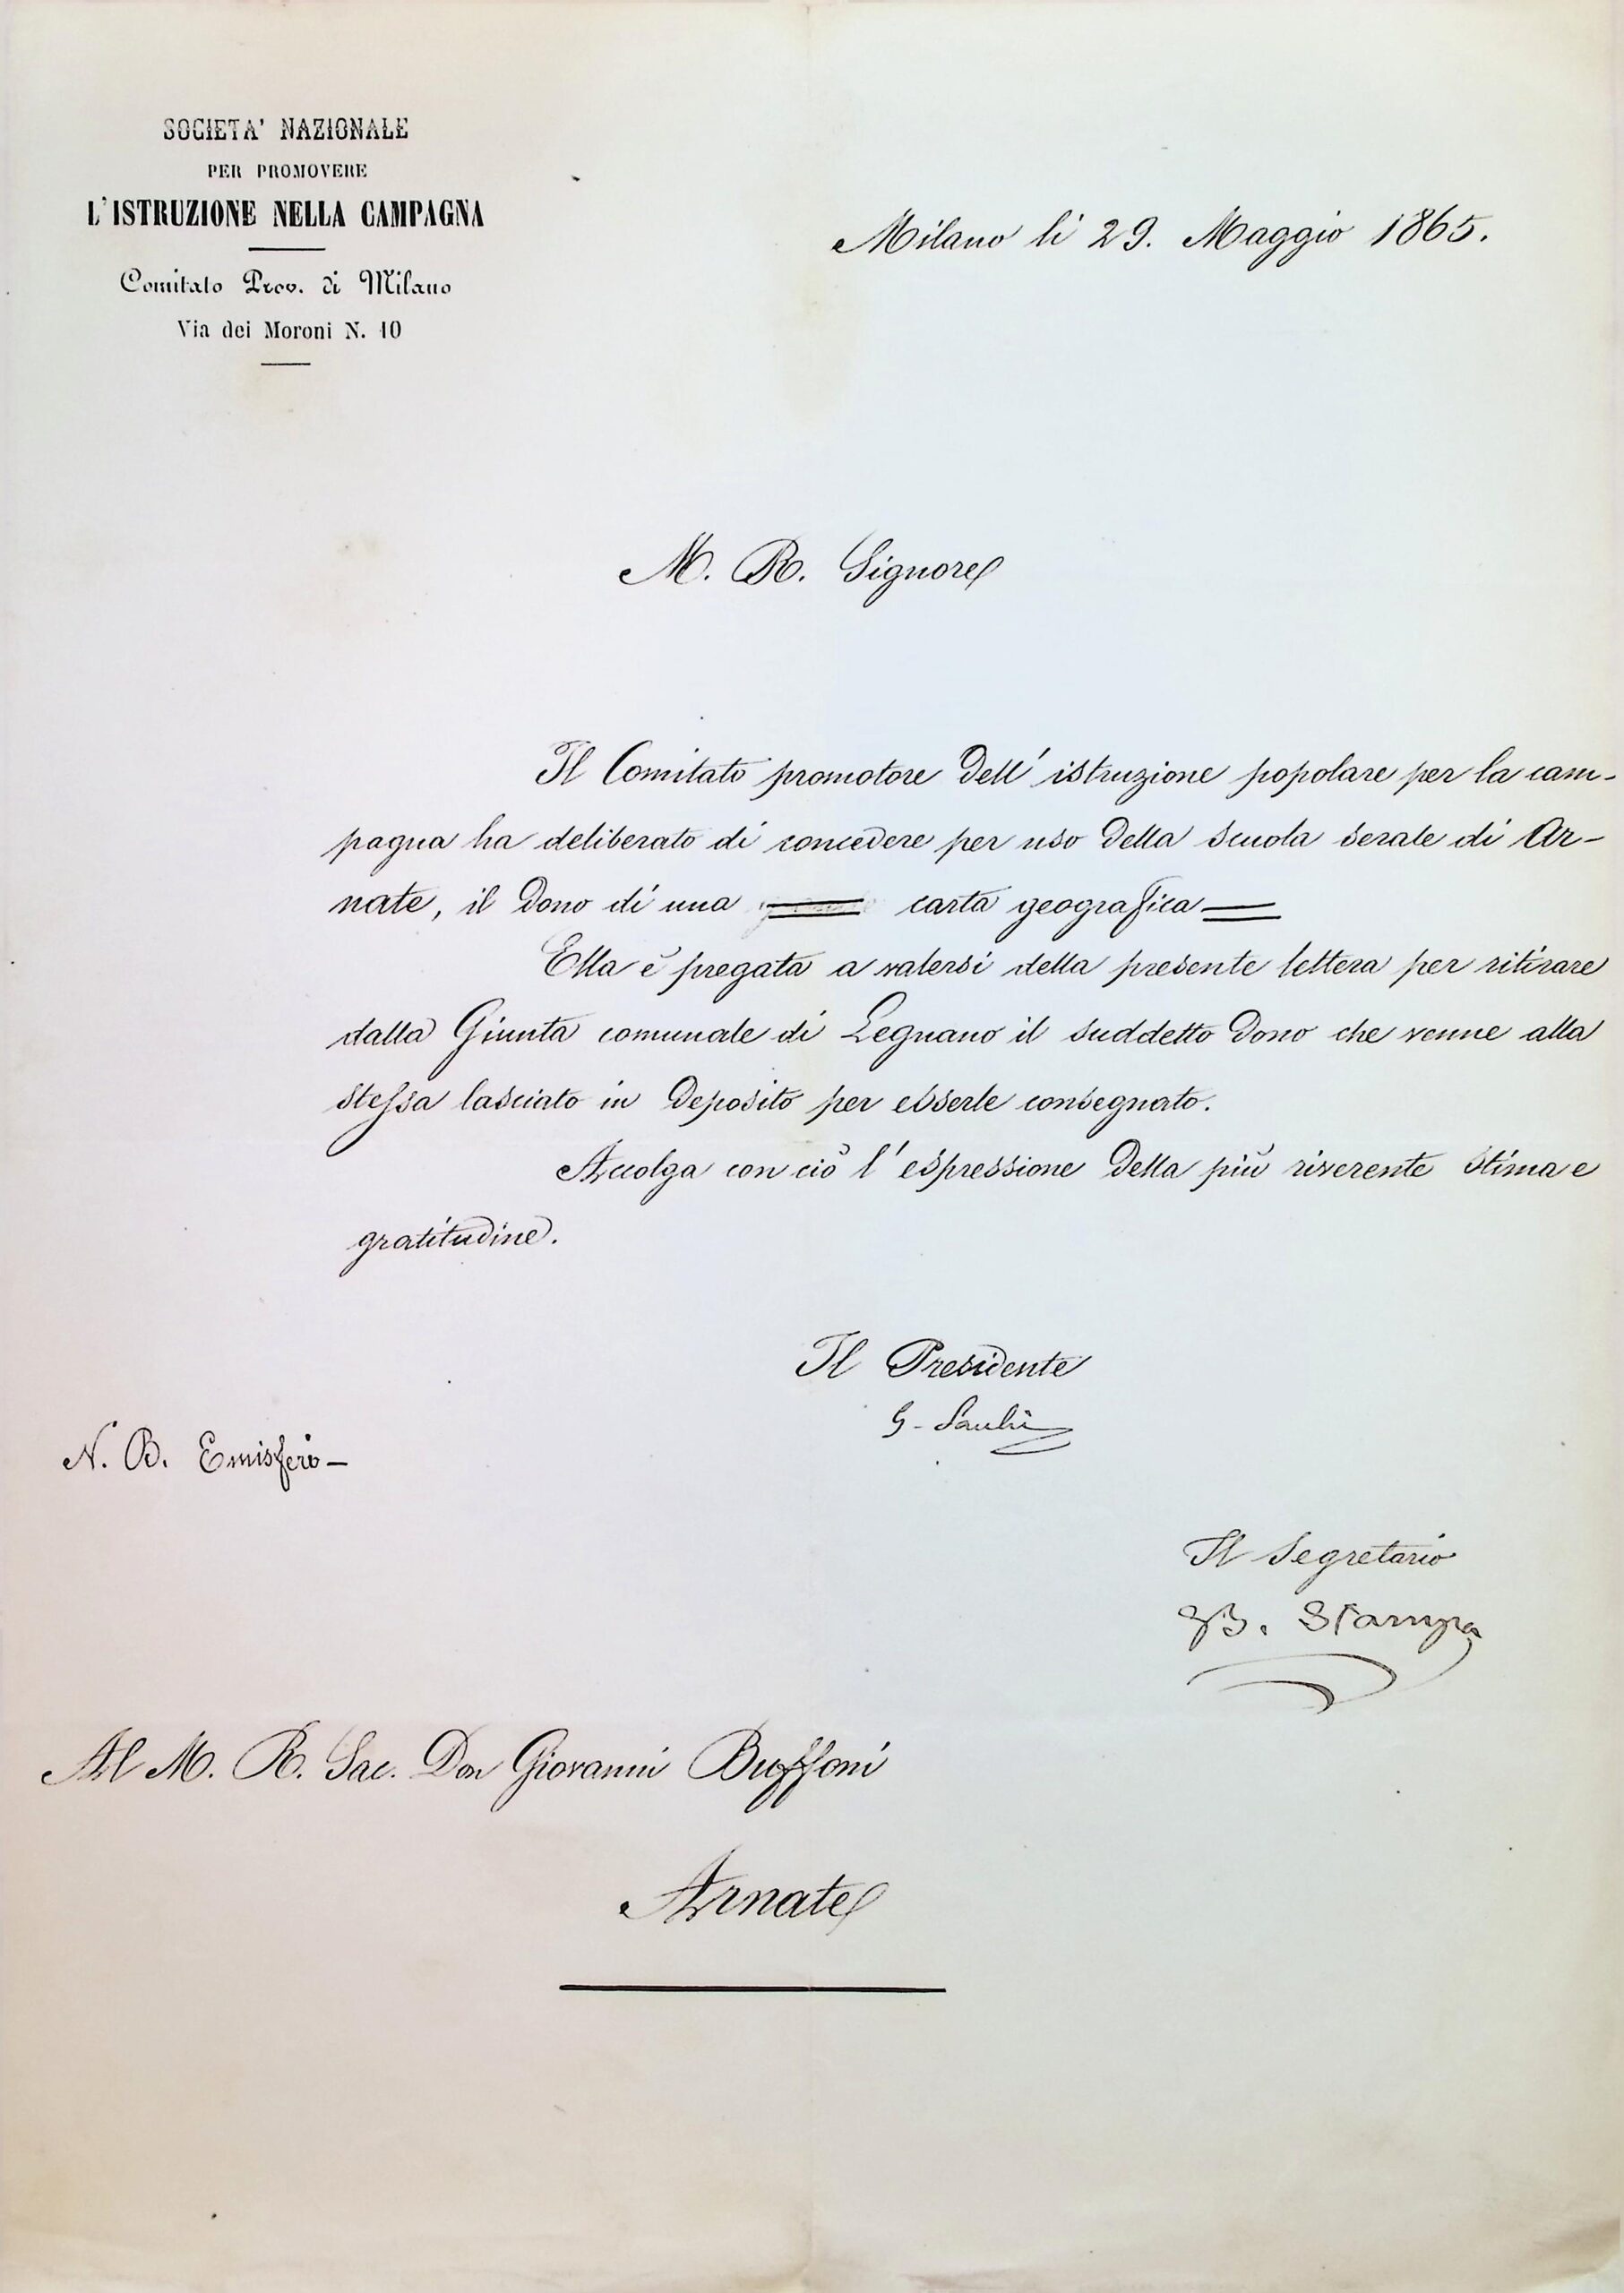 SOCIETA' NAZIONALE
PER PROMOVERE
L'ISTRUZIONE NELLA CAMPAGNA
Comitato Prov. di Milano
Via dei Moroni N. 10
Milano li 29. Maggio 1865.
M. R. Signore
Il Comitato promotore dell'istruzione popolare per la cam-
pagna ha deliberato di concedere per uso della scuola serale di Ar-
nate, il dono di una carta geografica
Ella è pregata a valersi della presente lettera per ritirare
dalla Giunta comunale di Legnano il suddetto dono che venne alla
stessa lasciato in deposito per esserle consegnato.
Accolga con ciò l'espressione della più riverente stima e
gratitudine.
Il Presidente
G. Sauli
N. B. Emisfero -
Il Segretario
B. Stampa
Al M. R. Sac. Don Giovanni Buffoni
Arnate